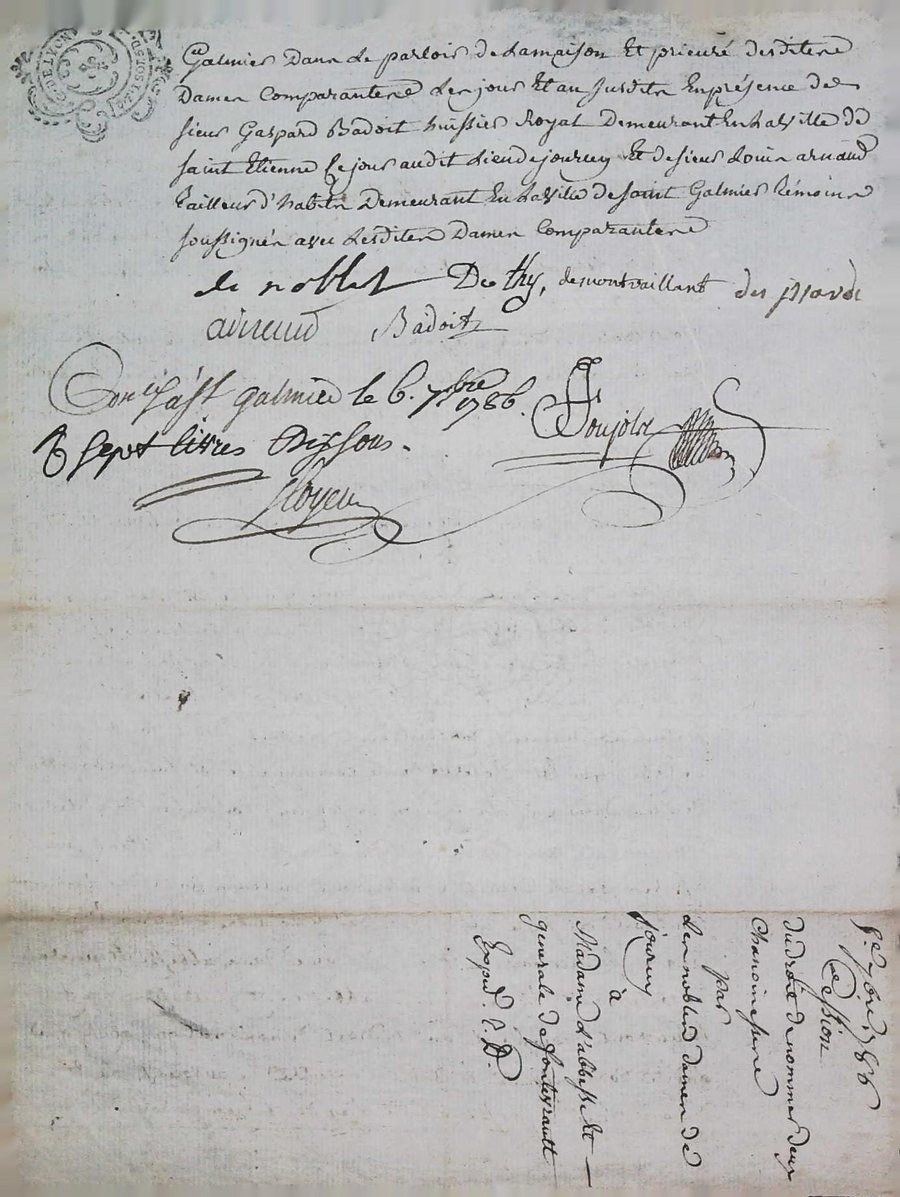 G. DE LYON
Galmier Dans Le parloir de Lamaison Et prieuré desdites
Dames Comparantes Les jour Et an susdits En présence de
sieur Gaspard Badoit huissier Royal Demeurant En La Ville de
saint Etienne Ce jour audit Lieu de jourcey Et de sieur Louis arnaud
tailleur d'habits Demeurant En La Ville de saint Galmier témoins
soussignés avec Lesdites Dames Comparantes
de noblet De thy, demontvaillant des
arnaud Badoit
à st galmier le 6. 7bre 1786.
sept livres Dix sous.
6e 7bre 1786
Cession
du droit de nommer deux
Chanoinesses
par
Les nobles dames de
jourcey
à
Madame L'abbesse Et
generale de fontevrault